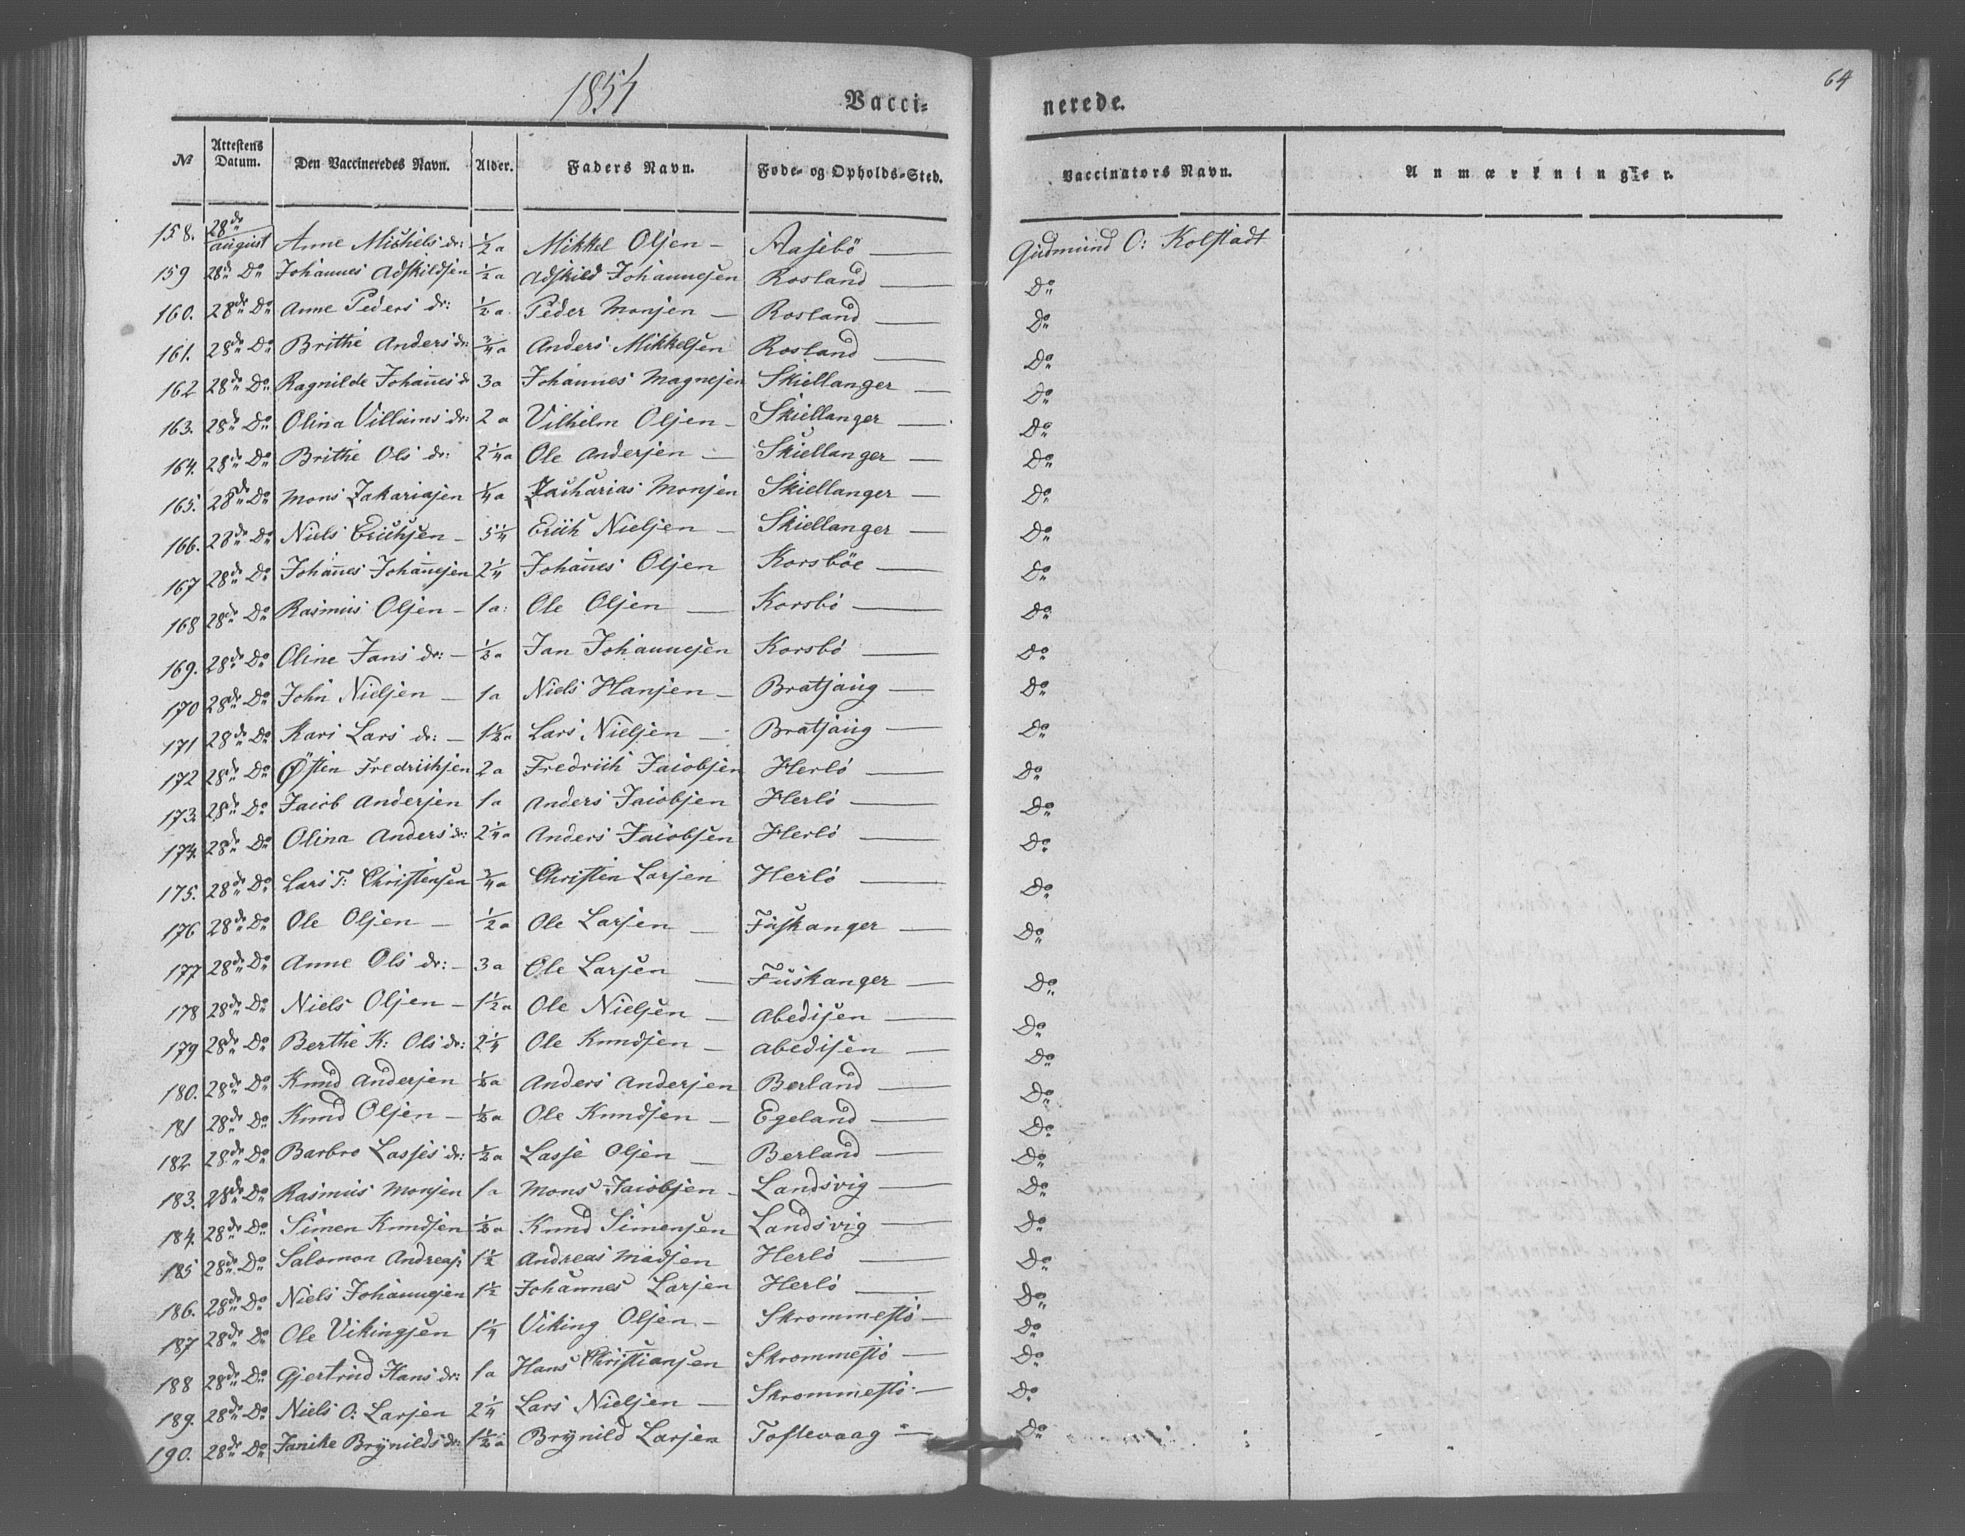 1854
Vacci-
nerede.
64
№ Attestens Datum. Den Vaccineredes Navn. Alder. Faders Navn. Føde- og Opholds-Sted. Vaccinators Navn. Anmærkninger.
158. 28de august Anne Michels dr: ½ a Mikkel Olsen - Aasebö — Gudmund O: Kolstadt
159 28de Do Johannes Adskildsen ½ a Adskild Johannesen Rosland — Do
160. 28de Do Anne Peders dr: ½ a Peder Monsen — Rosland — Do
161. 28de Do Brithe Anders dr: ¾ a Anders Mikkelsen Rosland — Do
162 28de Do Ragnilde Johañes d 3 a Johannes Magnesen Skiellanger — Do
163. 28de Do Olina Villums dr: 2 a Vilhelm Olsen - Skiellanger — Do
164. 28de Do Brithe Ols dr: 2¼ a Ole Andersen — Skiellanger — Do
165. 28de Do Mons Zakariasen ¼ a Zacharias Monsen Skiellanger — Do
166. 28de Do Niels Erichsen - 5¼ Erich Nielsen — Skiellanger — Do
167 28de Do Johañes Johañesen 2¼ Johañes Olsen Korsböe — Do
168 28de Do Rasmus Olsen - 1 a: Ole Olsen — Korsbö — Do
169. 28de Do Oline Jans dr: - ½ a Jan Johannesen Korsbö — Do
170 28de Do John Nielsen — 1 a Niels Hansen — Bratjaug — Do
171 28de Do Kari Lars dr: - 1½ a Lars Nielsen — Bratjaug — Do
172 28de Do Østen Fredrichsen 2 a Fredrich Jacobsen Herlö — Do
173 28de Do Jacob Andersen 1 a Anders Jacobsen Herlö — Do
174. 28de Do Olina Anders dr: 2¼ a Anders Jacobsen Herlö — Do
175. 28de Do Lars T: Christensen ¾ a Christen Larsen Herlö — Do
176 28de Do Ole Olsen — ½ a Ole Larsen — Fuskanger — Do
177 28de Do Anne Ols dr: - 3 a Ole Larsen — Fuskanger — Do
178 28de Do Niels Olsen - 1½ a Ole Nielsen — Abedisen — Do
179 28de Do Berthe K: Ols dr: 2¼ Ole Knudsen — Abedisen — Do
180. 28de Do Knud Andersen ½ a Anders Andersen Berland — Do
181 28de Do Knud Olsen - ½ a Ole Knudsen — Egeland — Do
182 28de Do Barbro Lasses dr: ½ a Lasse Olsen — Berland — Do
183. 28de Do Rasmus Monsen 1 a Mons Jacobsen - Landsvig — Do
184. 28de Do Simen Knudsen ½ a Knud Simensen Landsvig — Do
185 28de Do Salomon Andreas: 1½ Andreas Madsen Herlö — Do
186. 28de Do Niels Johannesen 1½ Johannes Larsen Herlö — Do
187 28de Do Ole Vikingsen 1¼ Viking Olsen - Skrommestö — Do
188 28de Do Gjertrud Hans dr: 1 a Hans Christiansen Skrommestö — Do
189. 28de Do Niels O: Larsen 2¼ Lars Nielsen — Skrommestö — Do
190. 28de Do Janike Brÿnilds dr: 1½ a Brÿnild Larsen Toftevaag — Do